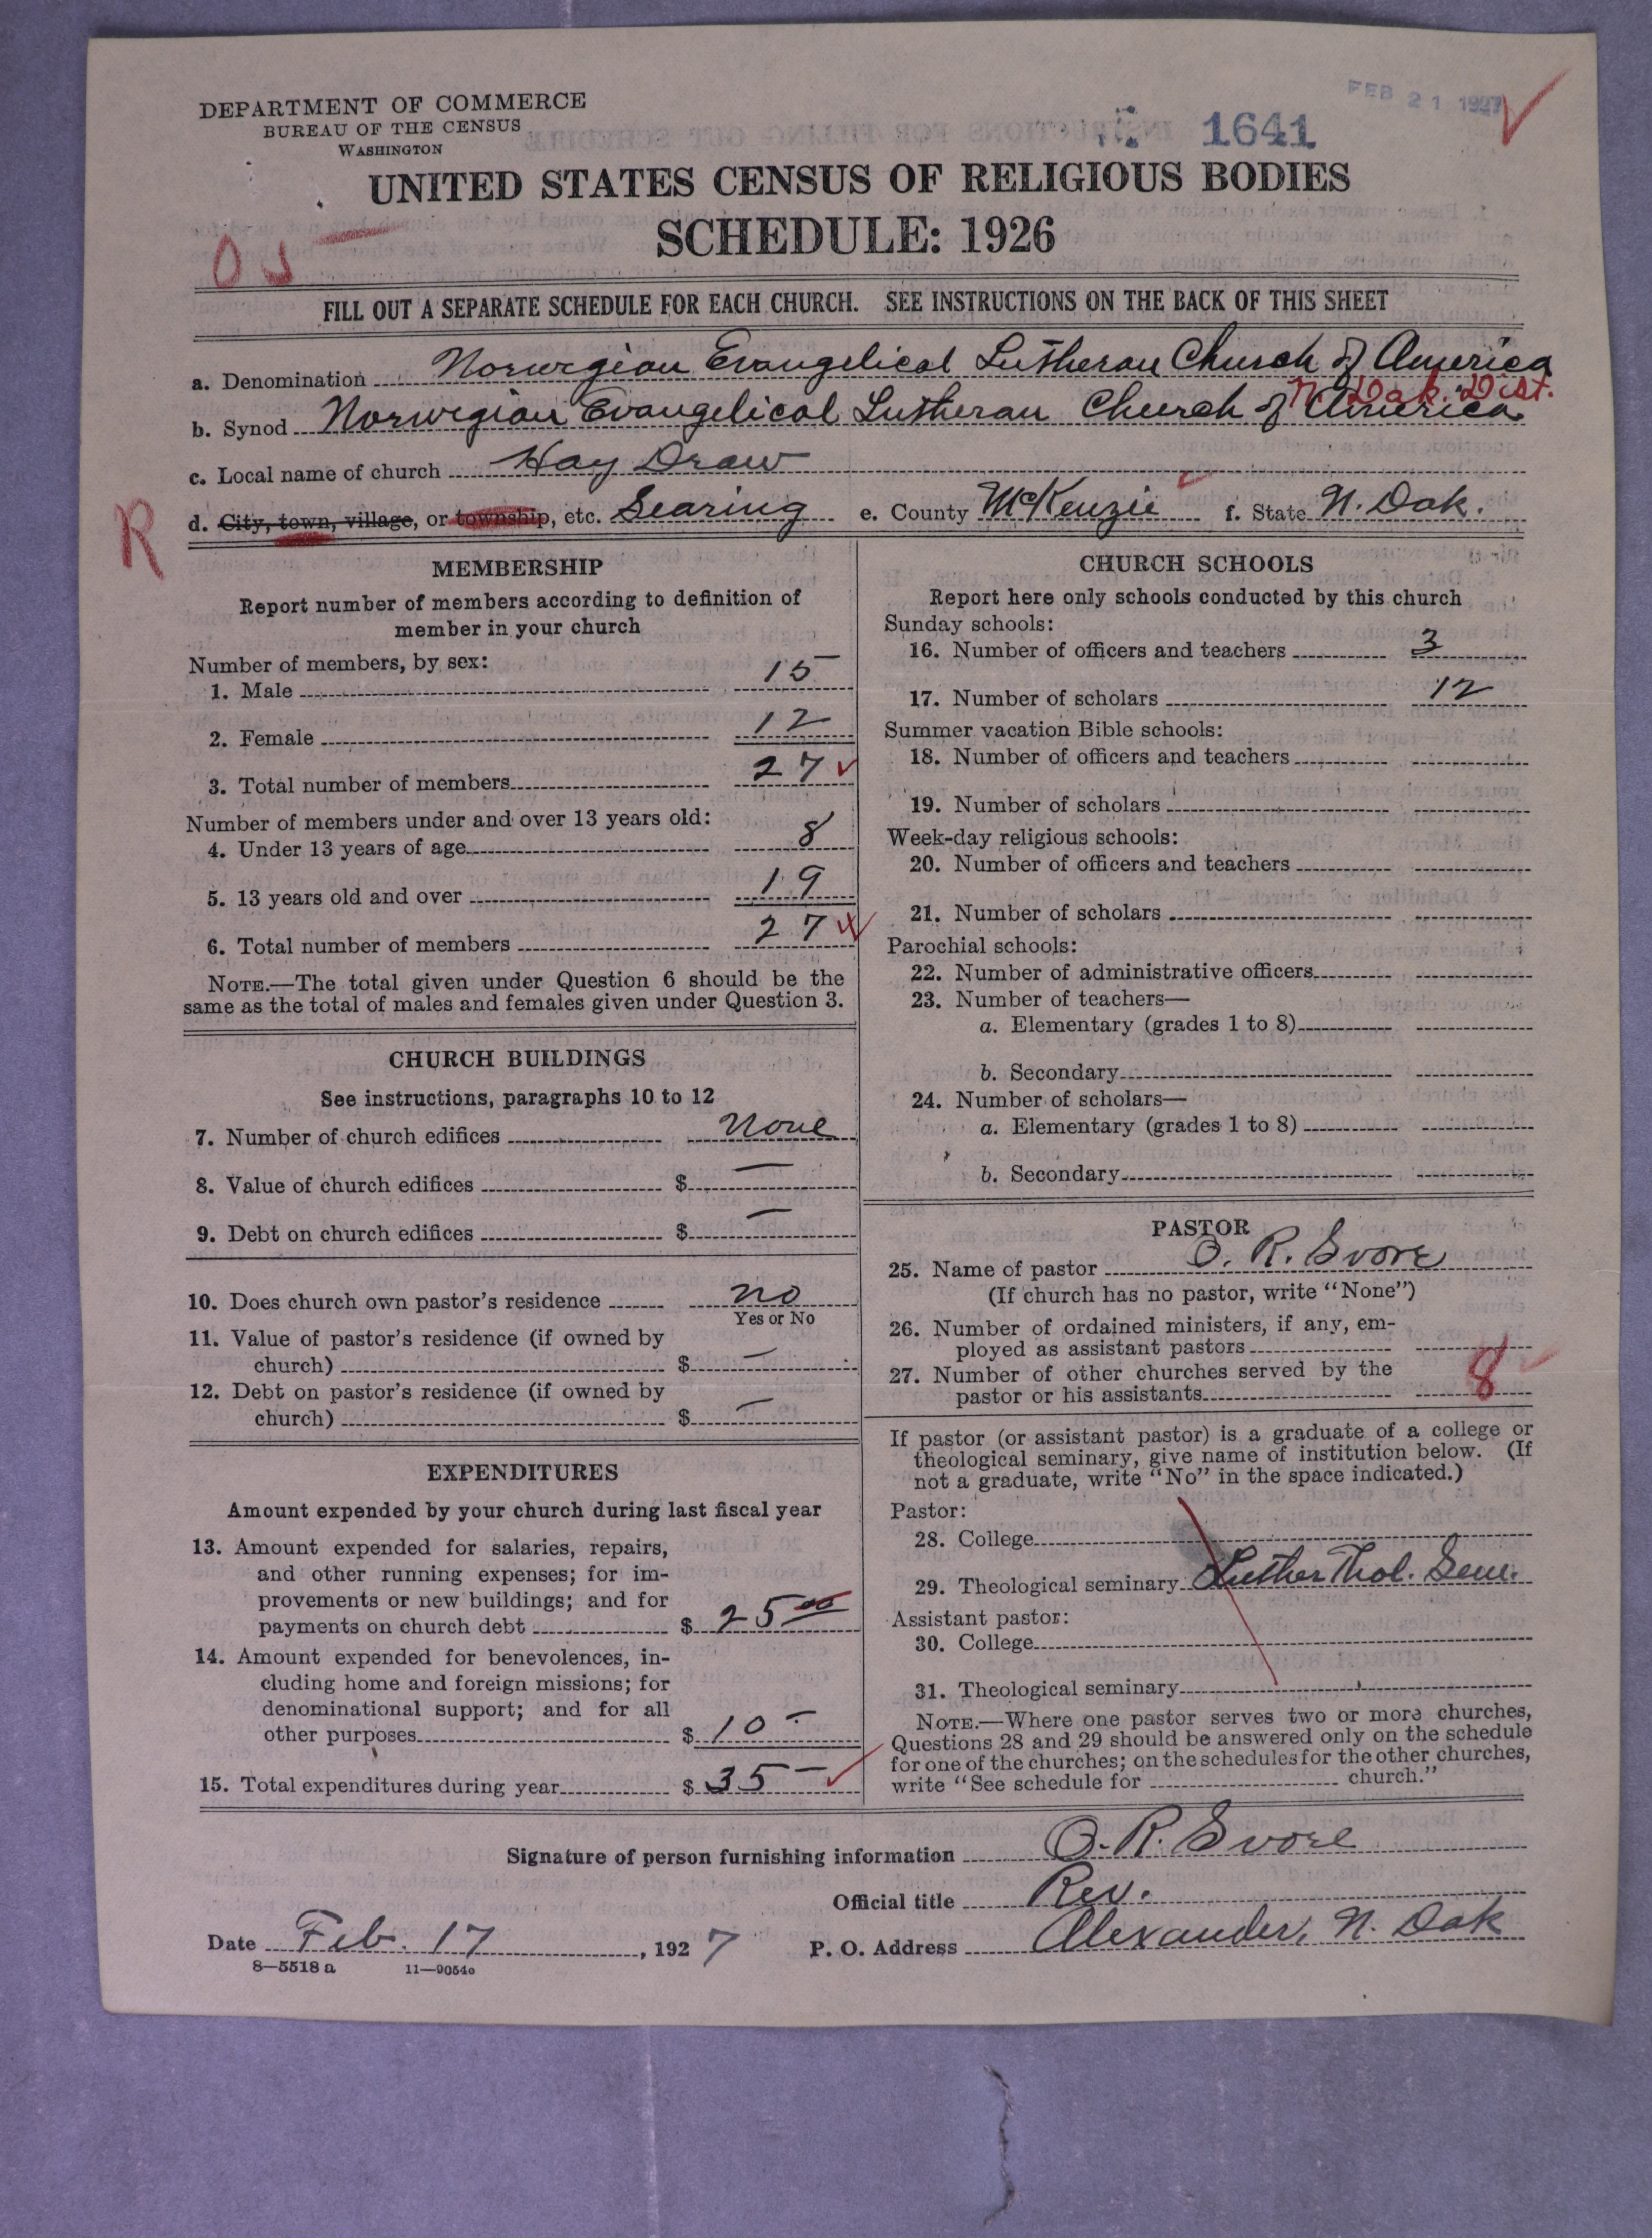 DEPARTMENT OF COMMERCE
BUREAU OF THE CENSUS
WASHINGTON
FEB 21 1927
1641
UNITED STATES CENSUS OF RELIGIOUS BODIES
SCHEDULE: 1926
FILL OUT A SEPARATE SCHEDULE FOR EACH CHURCH. SEE INSTRUCTIONS ON THE BACK OF THIS SHEET
a. Denomination Norwegian Evangelical Lutheran Church of America
N. Dak. Dist.
b. Synod Norwegian Evangelical Lutheran Church of America
c. Local name of church Hay Draw
R
d. City, town, village, or township, etc. Searing e. County McKenzie f. State N. Dak.
MEMBERSHIP
Report number of members according to definition of
member in your church
Number of members, by sex:
1. Male 15
2. Female 12
3. Total number of members 27
Number of members under and over 13 years old:
4. Under 13 years of age 8
5. 13 years old and over 19
6. Total number of members 27
NOTE.—The total given under Question 6 should be the
same as the total of males and females given under Question 3.
CHURCH BUILDINGS
See instructions, paragraphs 10 to 12
7. Number of church edifices None
8. Value of church edifices $ —
9. Debt on church edifices $ —
10. Does church own pastor's residence no
Yes or No
11. Value of pastor's residence (if owned by
church) $ —
12. Debt on pastor's residence (if owned by
church) $ —
EXPENDITURES
Amount expended by your church during last fiscal year
13. Amount expended for salaries, repairs,
and other running expenses; for im-
provements or new buildings; and for
payments on church debt $ 25 00
14. Amount expended for benevolences, in-
cluding home and foreign missions; for
denominational support; and for all
other purposes $ 10 —
15. Total expenditures during year $ 35 —
CHURCH SCHOOLS
Report here only schools conducted by this church
Sunday schools:
16. Number of officers and teachers 3
17. Number of scholars 12
Summer vacation Bible schools:
18. Number of officers and teachers
19. Number of scholars
Week-day religious schools:
20. Number of officers and teachers
21. Number of scholars
Parochial schools:
22. Number of administrative officers
23. Number of teachers—
a. Elementary (grades 1 to 8)
b. Secondary
24. Number of scholars—
a. Elementary (grades 1 to 8)
b. Secondary
PASTOR
25. Name of pastor O. R. Svore
(If church has no pastor, write "None")
26. Number of ordained ministers, if any, em-
ployed as assistant pastors
27. Number of other churches served by the
pastor or his assistants 8
If pastor (or assistant pastor) is a graduate of a college or
theological seminary, give name of institution below. (If
not a graduate, write "No" in the space indicated.)
Pastor:
28. College
29. Theological seminary Luther Thol. Sem.
Assistant pastor:
30. College
31. Theological seminary
NOTE.—Where one pastor serves two or more churches,
Questions 28 and 29 should be answered only on the schedule
for one of the churches; on the schedules for the other churches,
write "See schedule for church."
Signature of person furnishing information O. R. Svore
Official title Rev.
Date Feb. 17, 1927 P. O. Address Alexander, N. Dak
8—5518 a 11—9054a